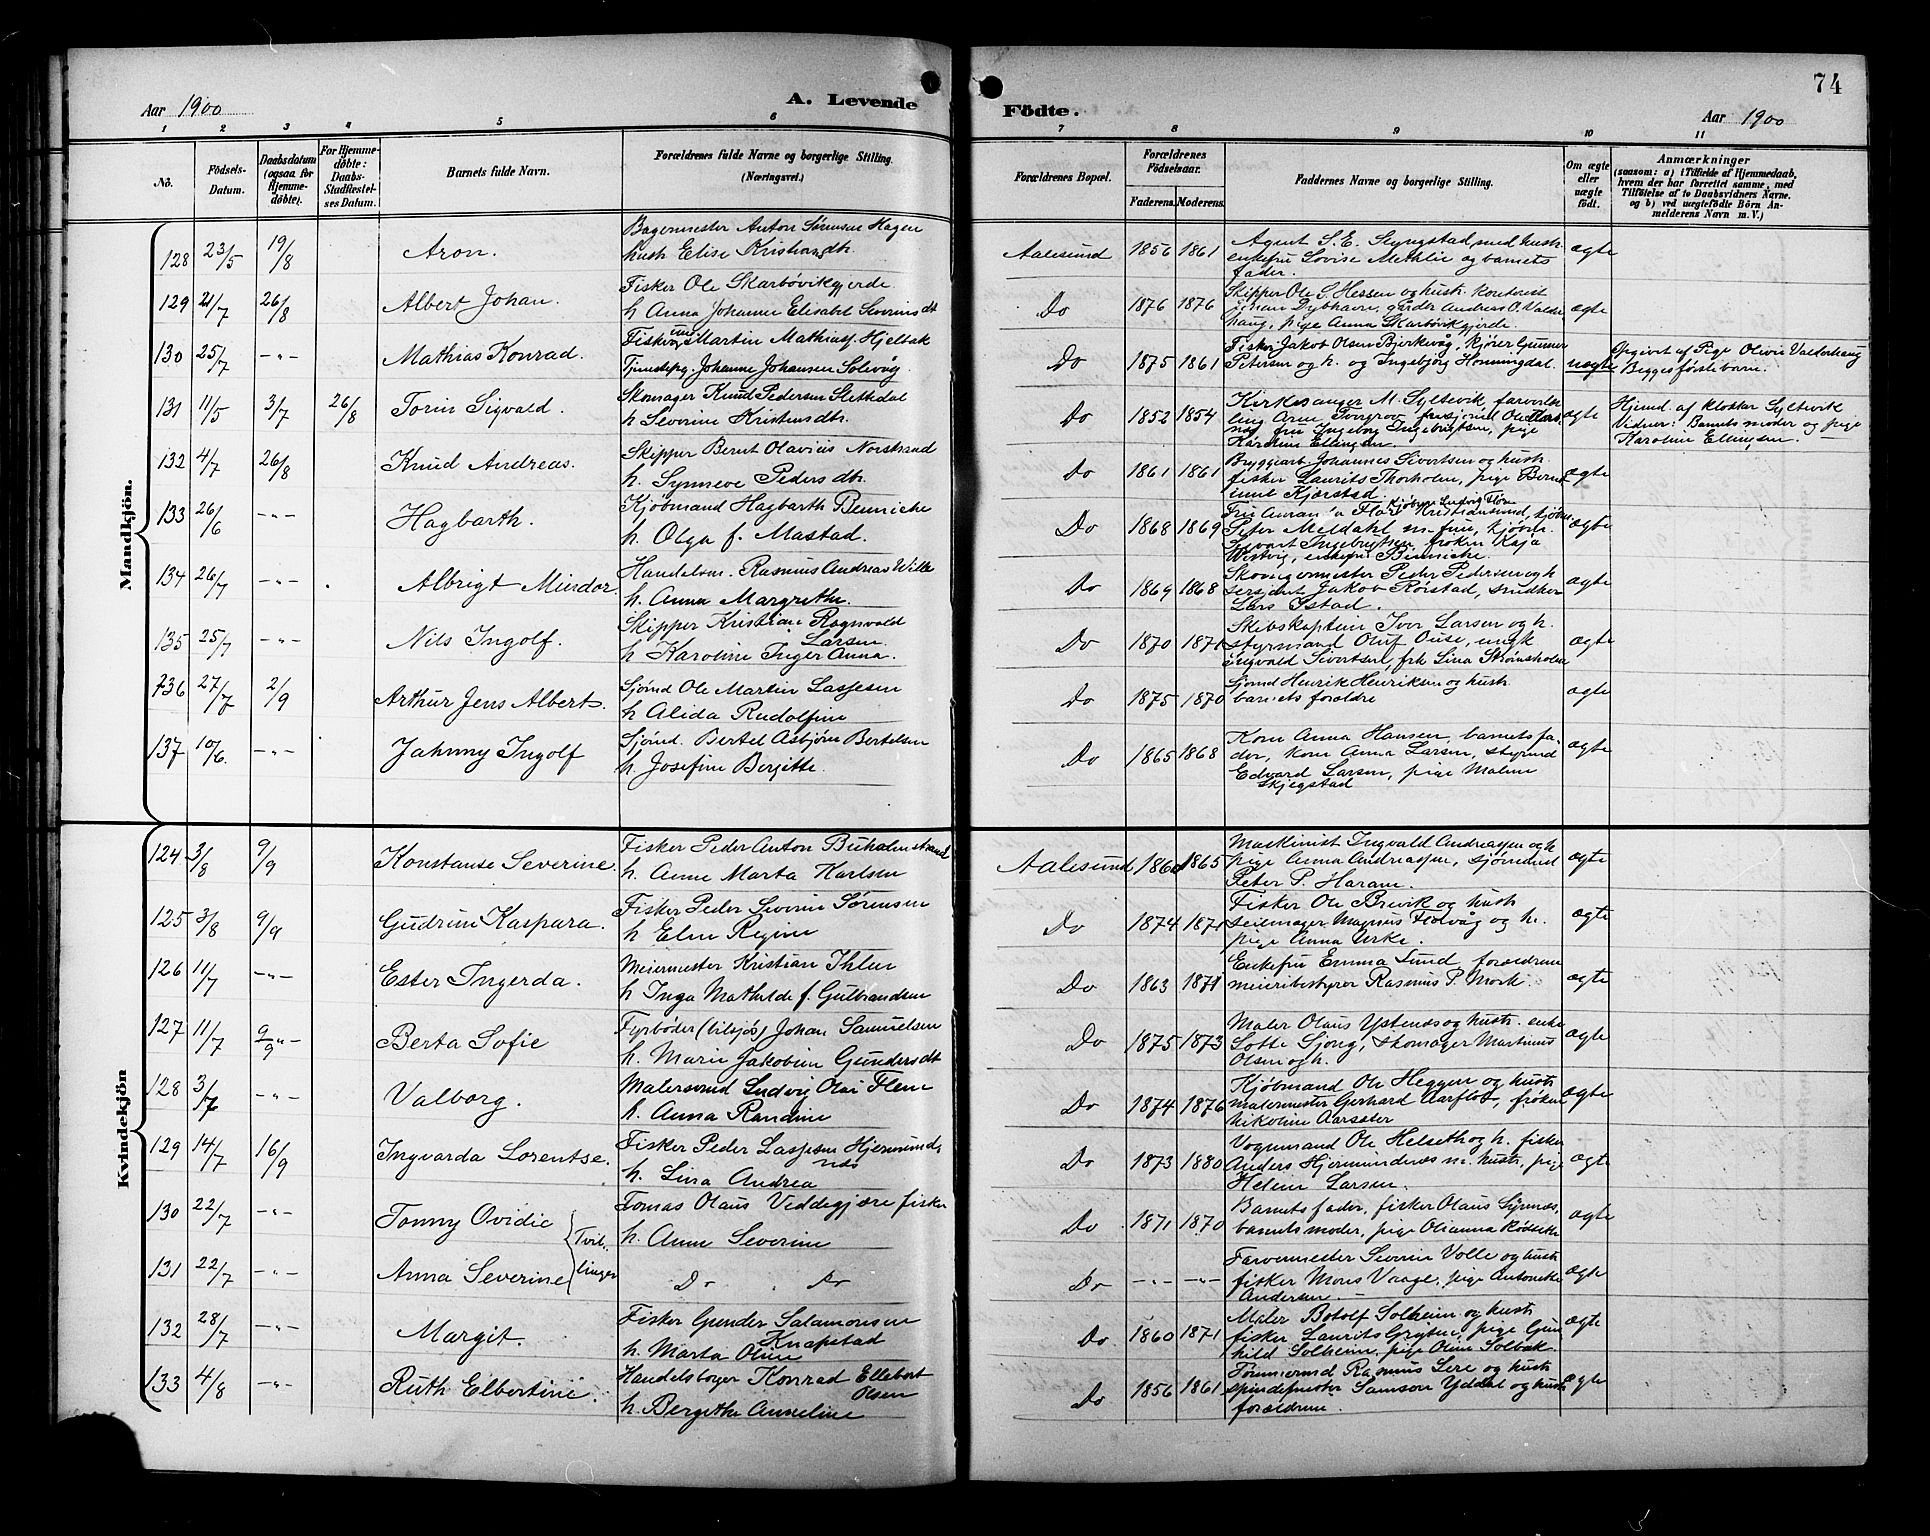 74
Aar 1900 A. Levende
Födte. Aar 1900
1 2 3 4 5 6
7 8 9 10 11
No. Födsels-Datum. Daabsdatum (ogsaa for Hjemme-döbte). For Hjemme-döbte: Daabs-Stadfæstel-ses Datum. Barnets fulde Navn. Forældrenes fulde Navne og borgerlige Stilling. (Næringsvei.)
Forældrenes Bopæl. Forældrenes Födselsaar. Faderens. Moderens. Faddernes Navne og borgerlige Stilling. Om ægte eller uægte födt. Anmærkninger (saasom: a) i Tilfælde af Hjemmedaab, hvem der har forrettet samme, med Tilföielse af to Daabsvidners Navne, og b) ved uægtefödte Börn An-melderens Navn m. V.)
Mandkjön.
128 23/5 19/8 Aron. Bagermester Anton Sørensen Hagen
hust Elise Kristiansdtr.
Aalesund 1856 1861 Agent S. E. Slyngstad, med hustr.
enkefru Lovise Methlie og barnets
fader. ægte
129 21/7 26/8 Albert Johan. Fisker Ole Skarbövikgjerde
h Anna Johanne Elisabet Severinsdt
Do 1876 1876 Skipper Ole S. Hessen og hustr.
Andreas O. Valder
haug, pige Anna Skarbövikgjerde. ægte
130 25/7 -"- Mathias Konrad. Fisker ung. Martin Mathiass. Hjelbak
Tjenstepg. Johanne Johansen Solevåg.
Do 1875 1861 Fisker Jakob Olsen Bjerkevåg, kjörer Gunner
Petersen og h. og Ingebjörg Honningdal. uægte Opgivet af Pige Olivie Valderhaug
Begges förste barn.
131 11/5 3/7 26/8 Torin Sigvald. Skomager Knud Pedersen Slettedal
h Severine Kristensdtr.
Do 1852 1854 Kirkesanger M. Syltevik, farverlær
ling Arne Torgrov,
fru Ingeborg Ingebrigtsen, pige
Karoline Ellingsen ægte Hjemd. af klokker Syltevik
Vidner: Barnets moder og pige
Karoline Ellingsen.
132 4/7 26/8 Knud Andreas. Skipper Bernt Olavius Norstrand
h. Synneve Pedersdtr.
Do 1861 1861 Bryggearb Johannes Sivertsen og hustr
fisker Laurits Thorholm, pige Bernt
ine Kjerstad. ægte
133 26/6 -"- Hagbarth. Kjöbmand Hagbarth Benniche
h. Olga f. Mastad.
Do 1868 1869
Kristiansund, kjöbm
Peter Meldahl m. frue, kjöbm.
Sivert Ingebrigtsen, fröken Kaja
Westvig, enkefru Binniche. ægte
134 26/7 -"- Albrigt Mindor. Handelsm. Rasmus Andreas Wilke
h. Anna Margrethe.
Do 1869 1868 Skomagermester Peder Pedersen og h
sersjant Jakob Rörstad, snedker
Lars Istad. ægte
135 25/7 -"- Nils Ingolf. Skipper Kristian Ragnvald
Larsen
h Karoline Inger Anna.
Do 1870 1871 Skibskaptein Iver Larsen og h.
styrmand Oluf Ouse, ungk
Ingvald Sivertsen, frk Lina Strömsholm ægte
136 27/7 2/9 Arthur Jens Albert. Sjömd Ole Martin Lassesen
h Alida Rudolfine
Do 1875 1870 Sjömd Henrik Henriksen og hustr.
barnets forældre ægte
137 10/6. -"- Jahnny Ingolf Sjömd. Bertel Asbjörn Bertelsen
h. Josefine Bergitte.
Do 1865 1868 Kone Anna Hansen, barnets fa-
der, kone Anna Larsen, styrmd
Edvard Larsen, pige Malene
Skjegstad ægte
Kvindekjön
124 3/8 9/9 Konstanse Severine. Fisker Peder Anton Buholmstrand
h. Anne Marta Karlsen
Aalesund 1860 1865 Maskinist Ingvald Andreassen og h
pige Anna Andreassen, sjömand
Peter P. Haram. ægte
125 3/8 9/9 Gudrun Kaspara. Fisker Peder Severin Sörensen
h Elen Regine
Do 1874 1871 Fisker Ole Brevik og hustr
seilmager Magnus Flotvåg og h.
pige Anna Urke. ægte
126 11/7 -"- Ester Ingerda. Meiermester Kristian Ihlen
h Inga Mathilde f. Gulbrandsen
Do 1863 1871 Enkefru Emma Lund, forældrene
meieribestyrer Rasmus P. Mork. ægte
127 11/7 9/9 -"- Berta Sofie Fyrböder (tilsjös) Johan Samuelsen
h. Marie Jakobine Gundersdt
Do 1875 1873 Maler Olaus Ystenes og hustr. enke
Lotte Sjong, skomager Martinus
Olsen og h. ægte
128 3/7 -"- Valborg. Malersvend Ludvig Olai Flem
h. Anna Randine
Do 1874 1876 Kjöbmand Ole Heggen og hustr
malermester Gerhard Aarflot, fröken
Nikoline Aarsæter ægte
129 14/7 16/9 Ingvarda Lorentse. Fisker Peder Lassesen Hjermund-
nes
h. Lina Andrea
Do 1873 1880 Vognmand Ole Helseth og h. fisker
Anders Hjermundnes m. hustr., pige
Helene Larsen. ægte
130 22/7 -"- Tonny Ovidie Tvil-linger Tomas Olaus Veddegjære fisker
h. Anne Severine
Do 1871 1870 Barnets fader, fisker Olaus Synnes,
barnets moder, pige Olianna Rödseth ægte
131 22/7 -"- Anna Severine Do Do
Do -"- -"- Farvermester Severin Volle og hustr
fisker Mons Vaage, pige Antonette
Andersen. ægte
132 28/7 -"- Margit. Fisker Gunder Salamonsen
Knapstad
h. Marta Oline
Do 1860 1871 Maler Botolf Solheim og hustr
fisker Laurits Grytten, pige Gun
hild Solheim, pige Oline Solbak. ægte
133 4/8 -"- Ruth Elbertine Handelsborger Konrad Ellebert
Olsen
h. Bergithe Anneline
Do 1856 1861 Tömmermd Rasmus Lere og hustr
spindemester Samson Yddal og hustr
forældrene. ægte